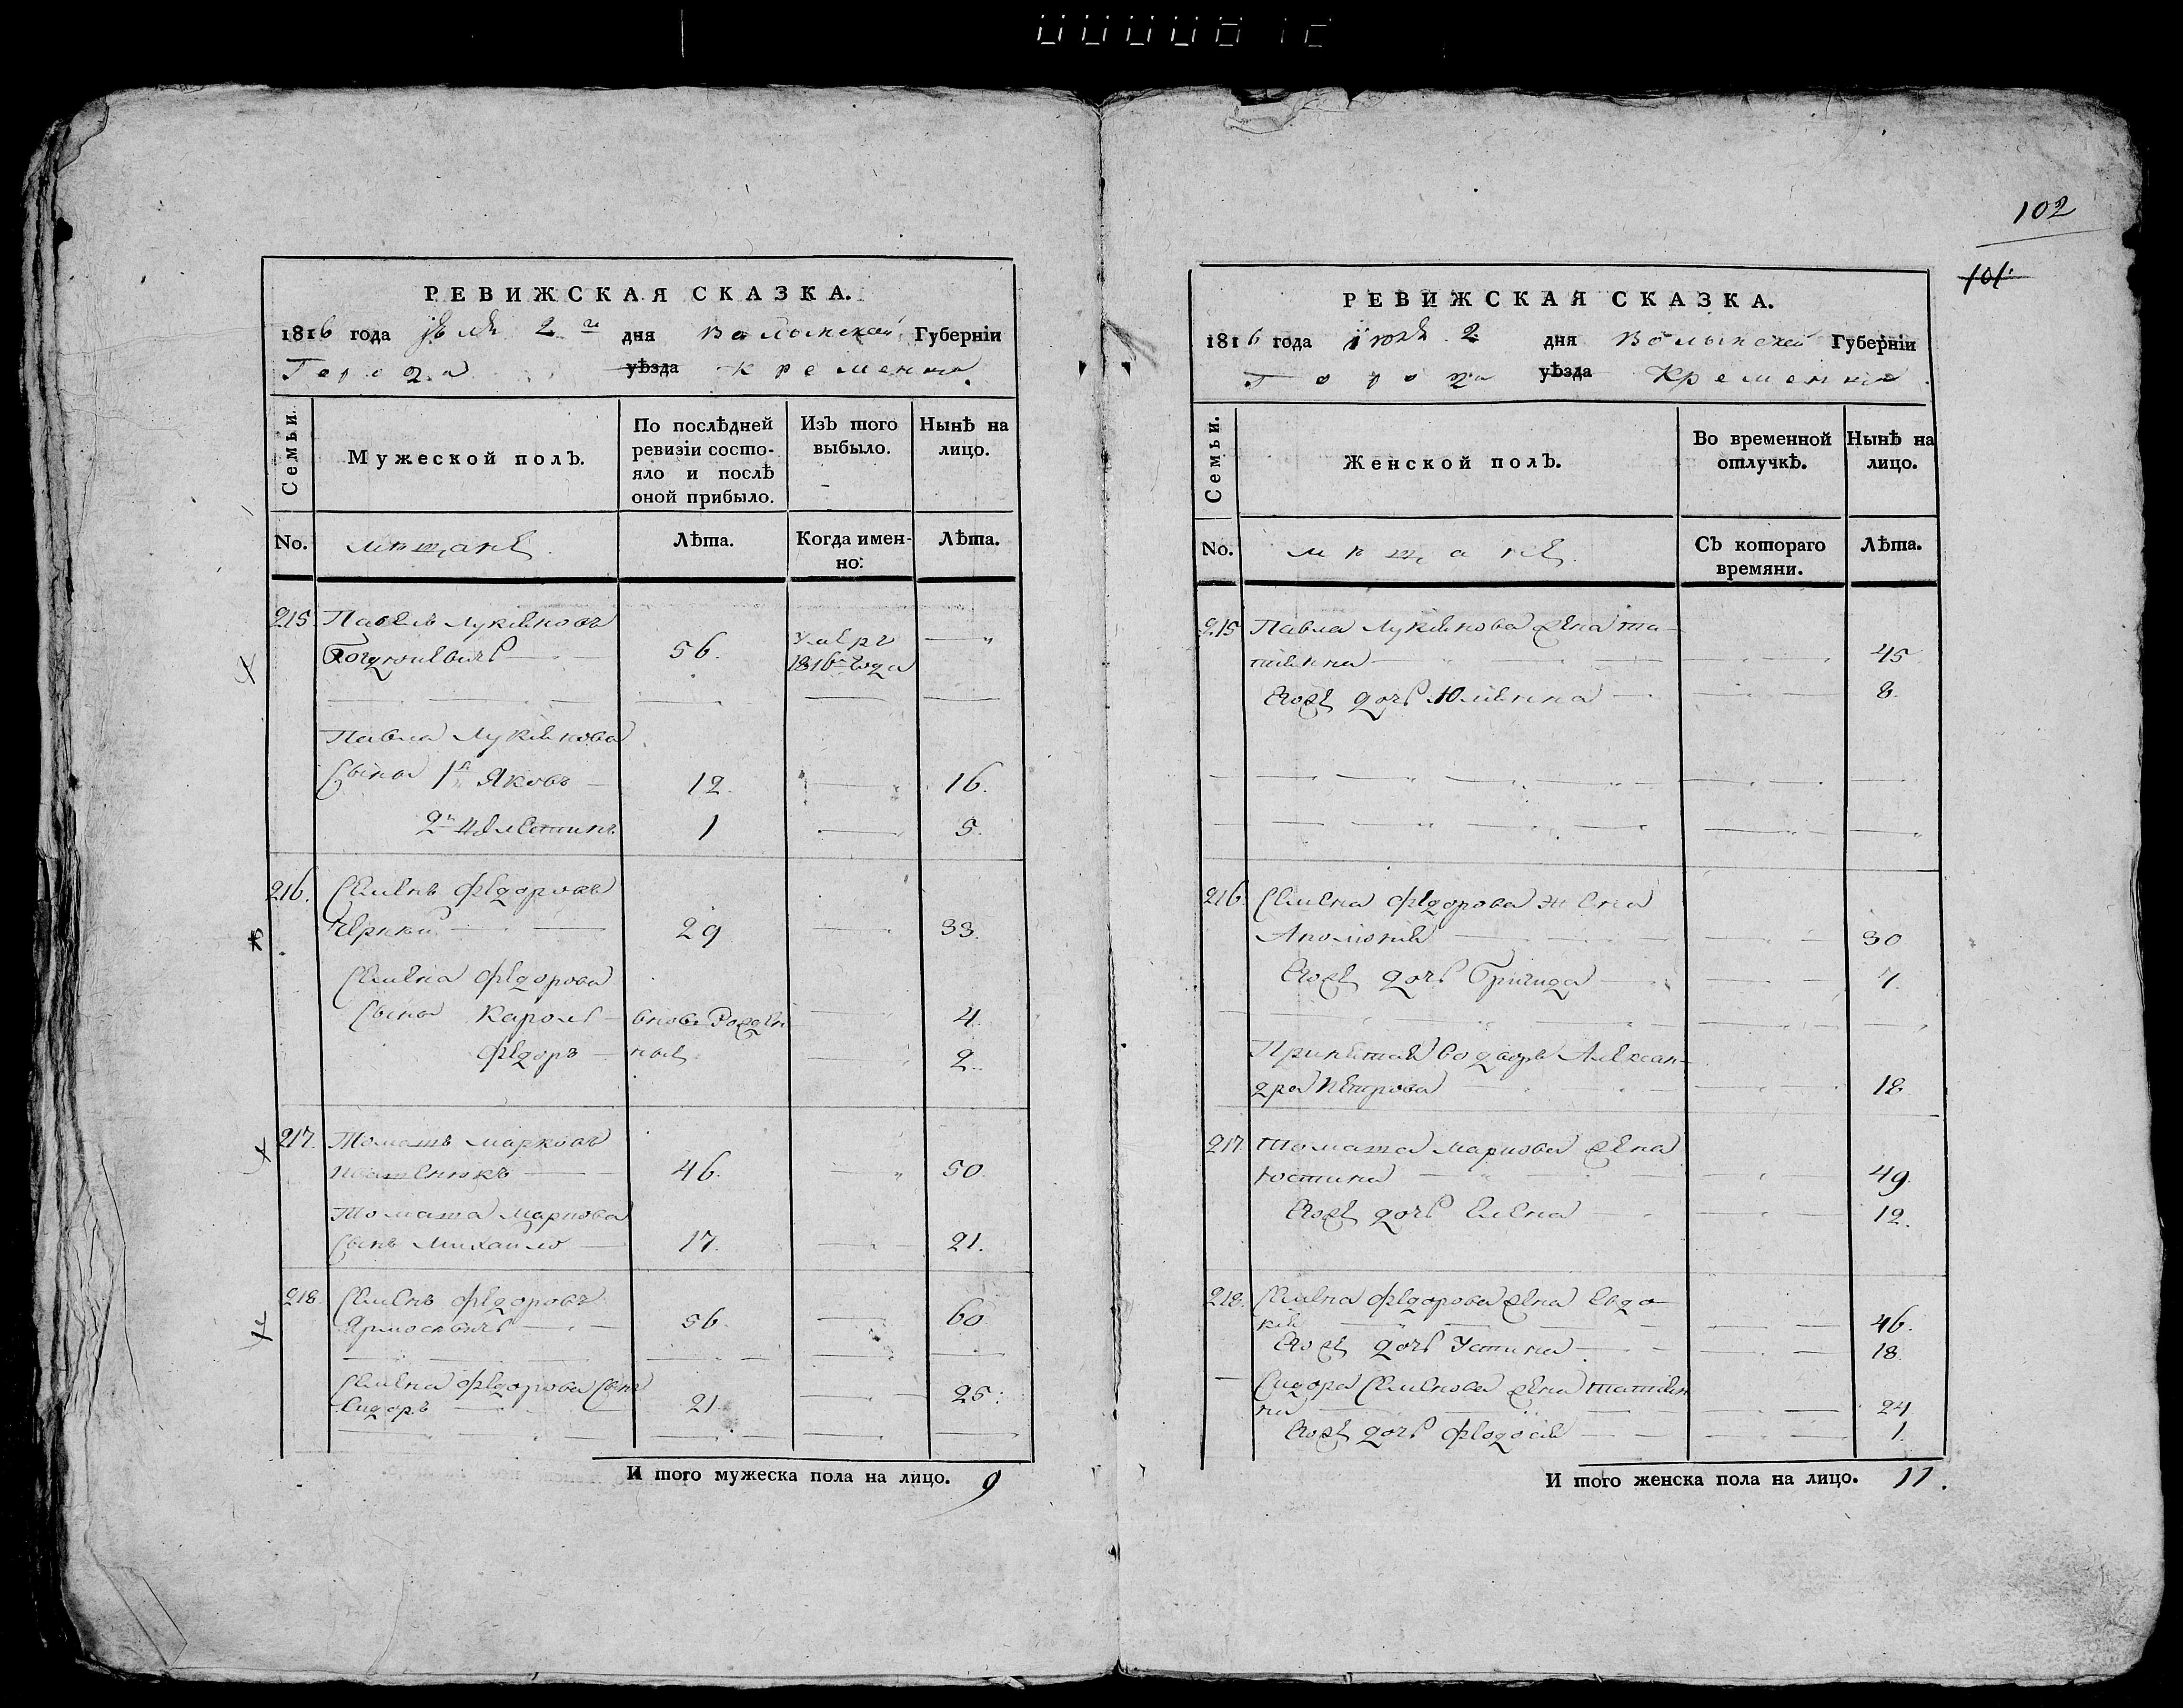 102
101
РЕВИЖСКАЯ СКАЗКА.
1816 года 2 го дня Волынской Губерніи
Города уѣзда кременца
Семьи.
Мужеской полЪ.
По послѣдней ревизіи состояло и послѣ оной прибыло.
ИзЪ того выбыло.
Нынѣ на лицо.
No. мѣщанѣ Лѣта. Когда именно: Лѣта.
215. Павелъ Лукяновъ
56. умеръ 1816 года
Павла Лукянова
Сыны 1й Яковъ 12. 16.
2й 1 5.
216. Семенъ Федоровъ
29 33.
Семена Федорова
Сыны Кароль вновь Рожден 4
Федоръ ные 2
217. Томашъ Марковъ
46. 50.
Томаша Маркова
Сынъ Михайло 17. 21.
218. Семенъ Федоровъ
56. 60
Семена Федорова Сынъ
Сидоръ 21 25.
И того мужеска пола на лицо. 9
РЕВИЖСКАЯ СКАЗКА.
1816 года іюля 2 дня Волынской Губерніи
Города уѣзда Кременца
Семьи.
Женской полЪ.
Во временной отлучкѣ.
Нынѣ на лицо.
No. мѣщанѣ СЪ котораго времяни. Лѣта.
215 Павла Лукянова жена та-
тияна 45
Егоже дочь Юлияна 8.
216. Семена Федорова жена
Аполония 30
Егоже дочь Бригида 7.
Принетая во дворъ Алексан-
дра Петрова 18
217 Томаша Маркова жена
Юстина 49.
Егоже дочь Елена 12.
218. Семена Федорова жена Евдо-
кия 46.
Егоже дочь Устина 18
Сидора Семенова жена татиян
на 24
Егоже дочь Феодосия 1.
И того женска пола на лицо. 11.